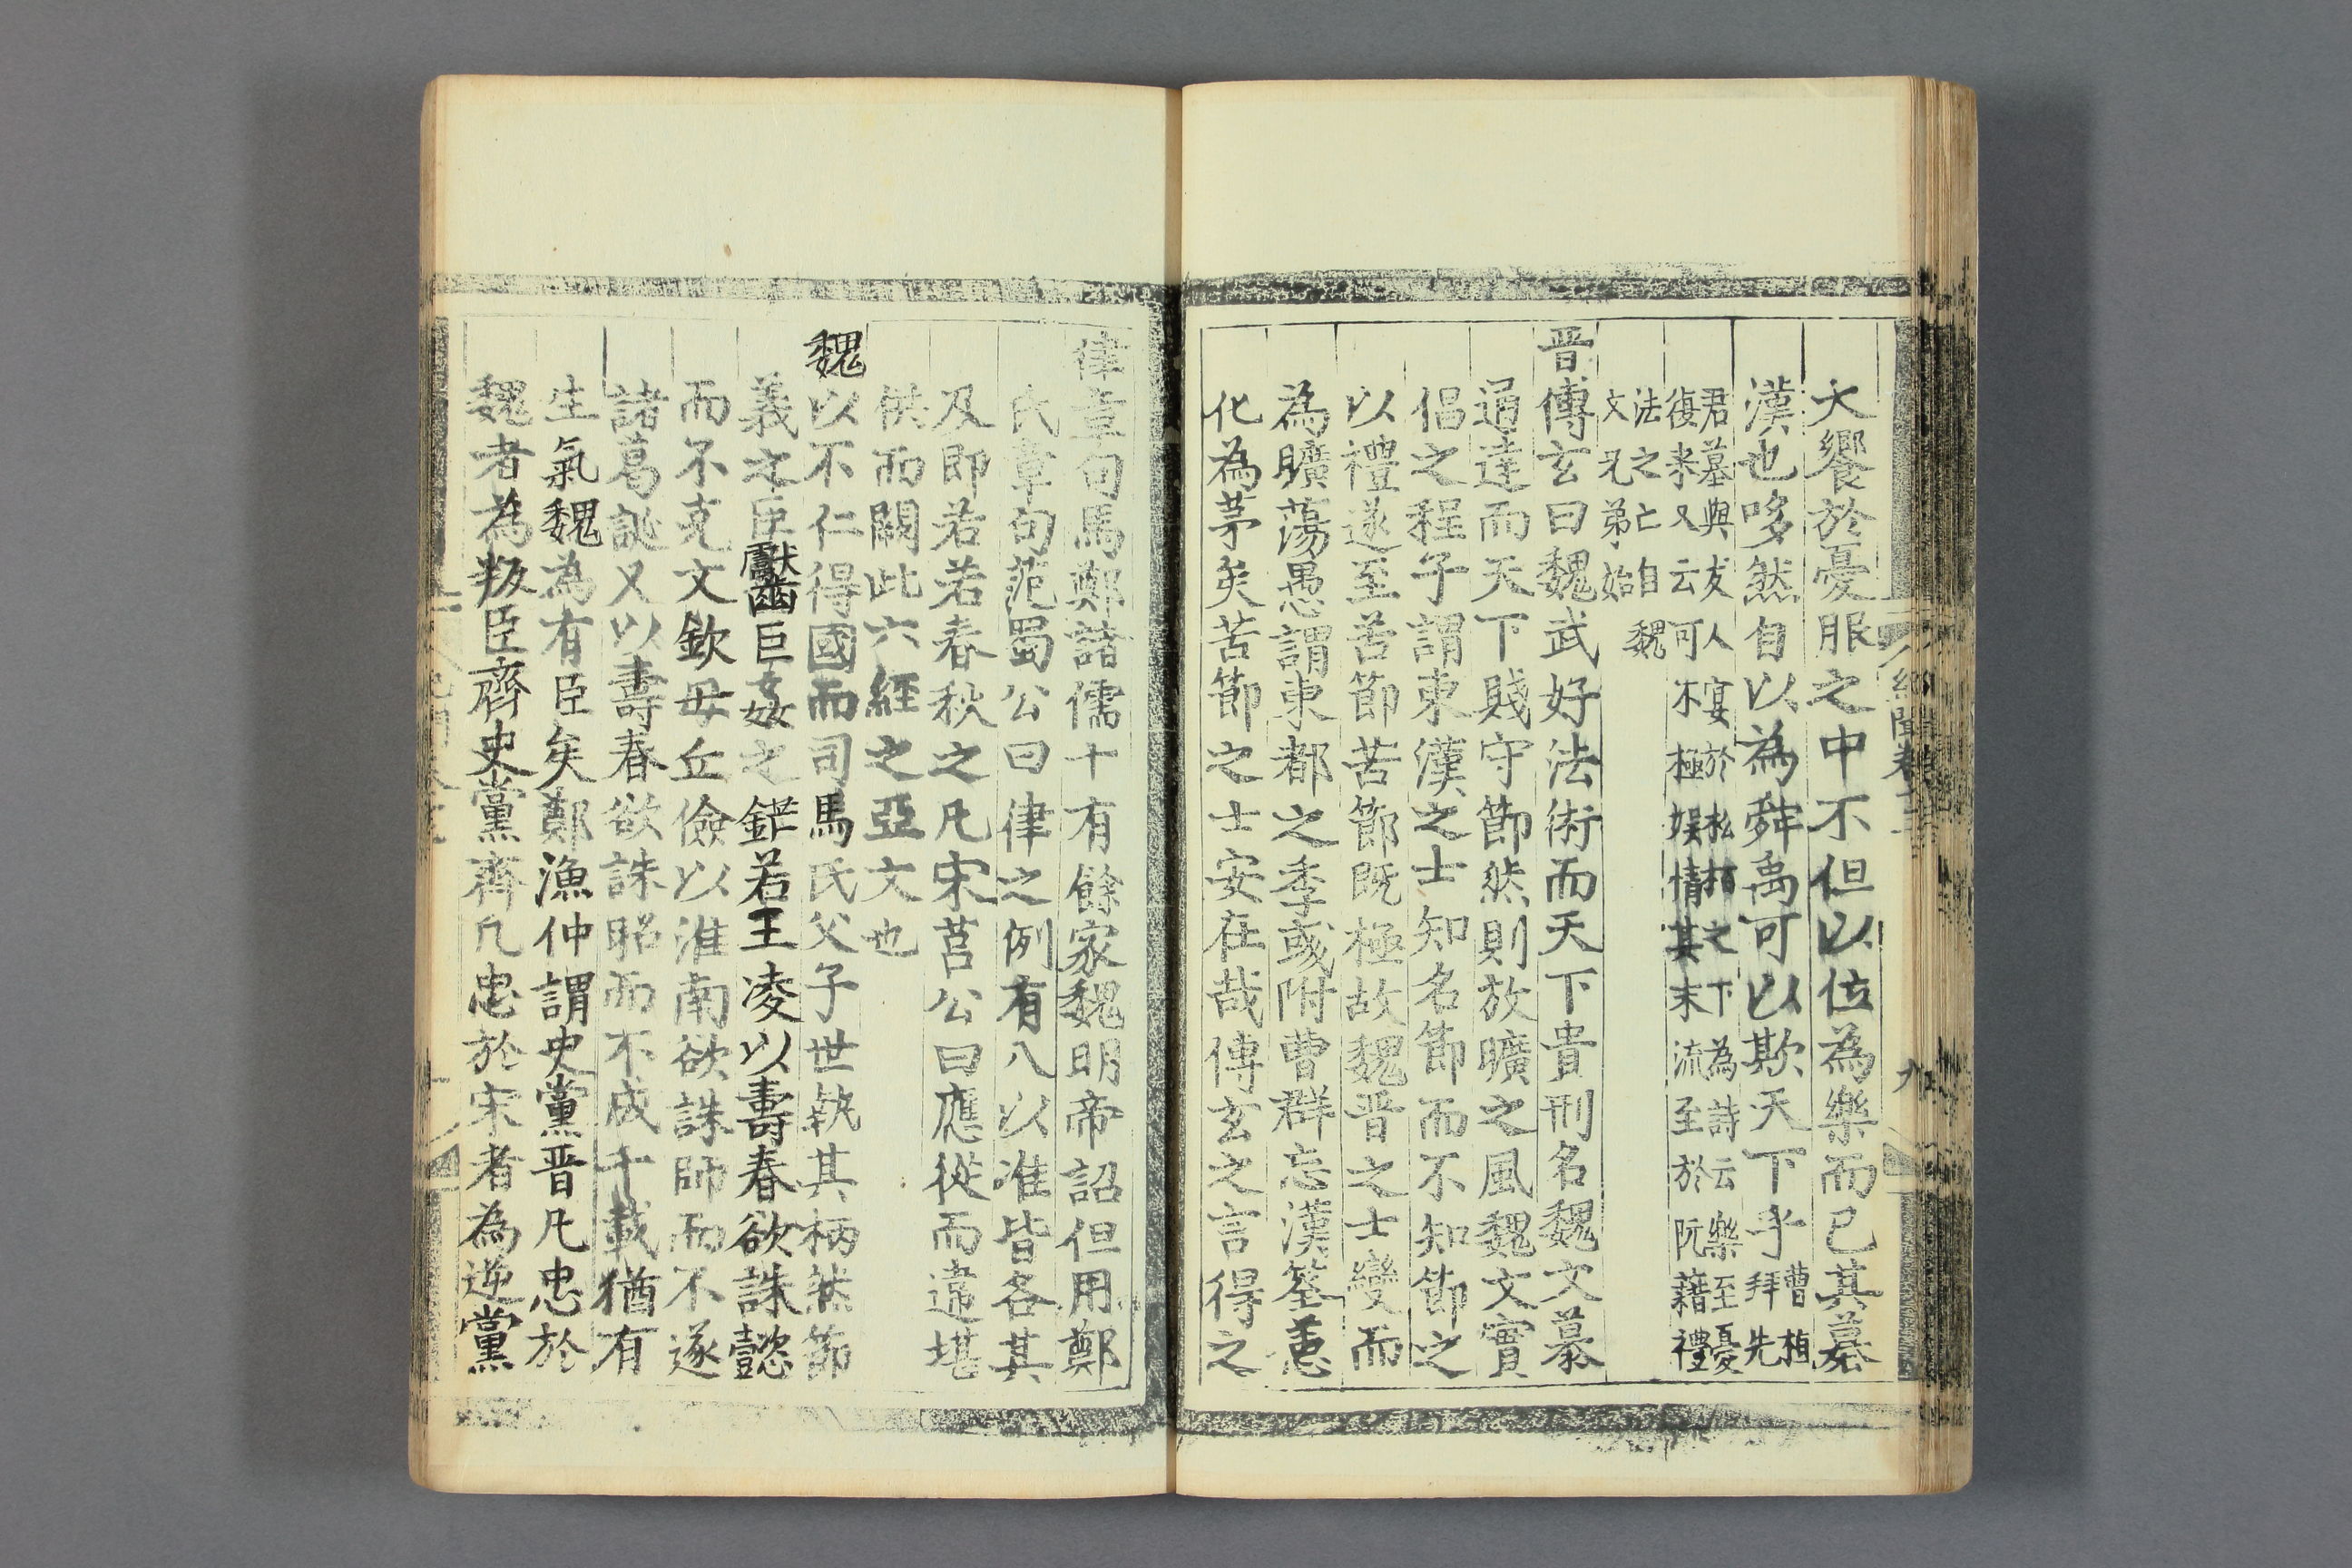 大饗於憂服之中不但以位為樂而已其墓
漢也哆然自以為舜禹可以欺天下乎曹植拜先
君墓與友人宴於松栢之下為詩云樂至憂
復来又云可不極娱情其末流至於阮藉禮
法之亡自魏
文兄弟始
晋傅玄曰魏武好法術而天下貴刑名魏文慕
通達而天下賤守節然則放曠之風魏文實
倡之程子謂東漢之士知名節而不知節之
以禮遂至苦節苦節既極故魏晋之士變而
為曠蕩愚謂東都之季彧附曹群忘漢荃蕙
化為茅矣苦節之士安在哉傅玄之言得之
律章句馬鄭諸儒十有餘家魏明帝詔但用鄭
氏章句范蜀公曰律之例有八以准皆各其
及即若若春秋之凡宋莒公曰應從而違堪
供而闕此六經之亞文也
魏以不仁得國而司馬氏父子世執其柄然節
義之臣齾巨姦之鋩若王凌以壽春欲誅懿
而不克文欽毋丘儉以淮南欲誅師而不遂
諸葛誕又以壽春欲誅昭而不成千載猶有
生氣魏為有臣矣鄭漁仲謂史黨晋凡忠於
魏者為叛臣齊史黨齊凡忠於宋者為逆黨